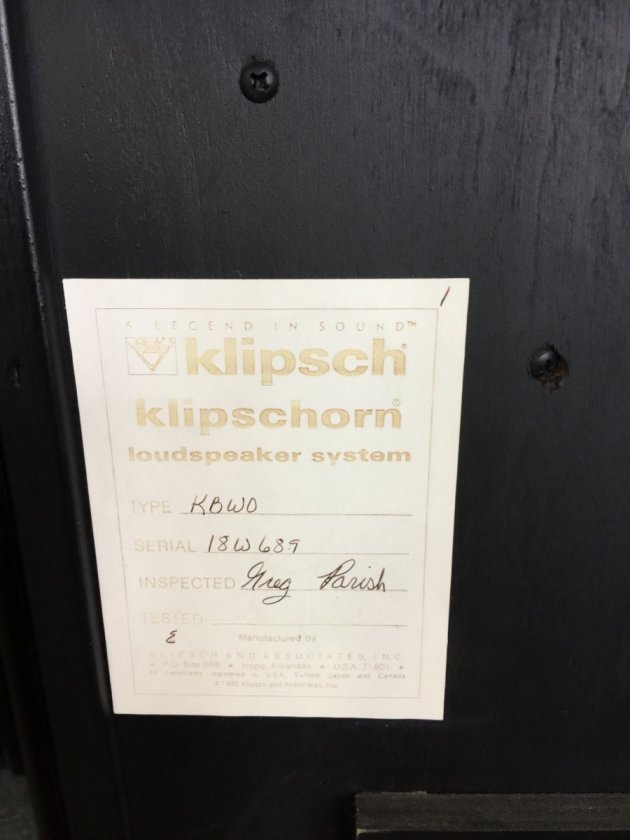 1
A LEGEND IN SOUND™
klipsch®
klipschorn®
loudspeaker system
TYPE KBWO
SERIAL 18W689
INSPECTED Greg Parish
TESTED
E
Manufactured By
KLIPSCH AND ASSOCIATES, INC.
P.O. Box 688 • Hope, Arkansas • U.S.A. 71801 •
All trademarks registered in U.S.A. Europe, Japan and Canada
© 1980 Klipsch and Associates, Inc.